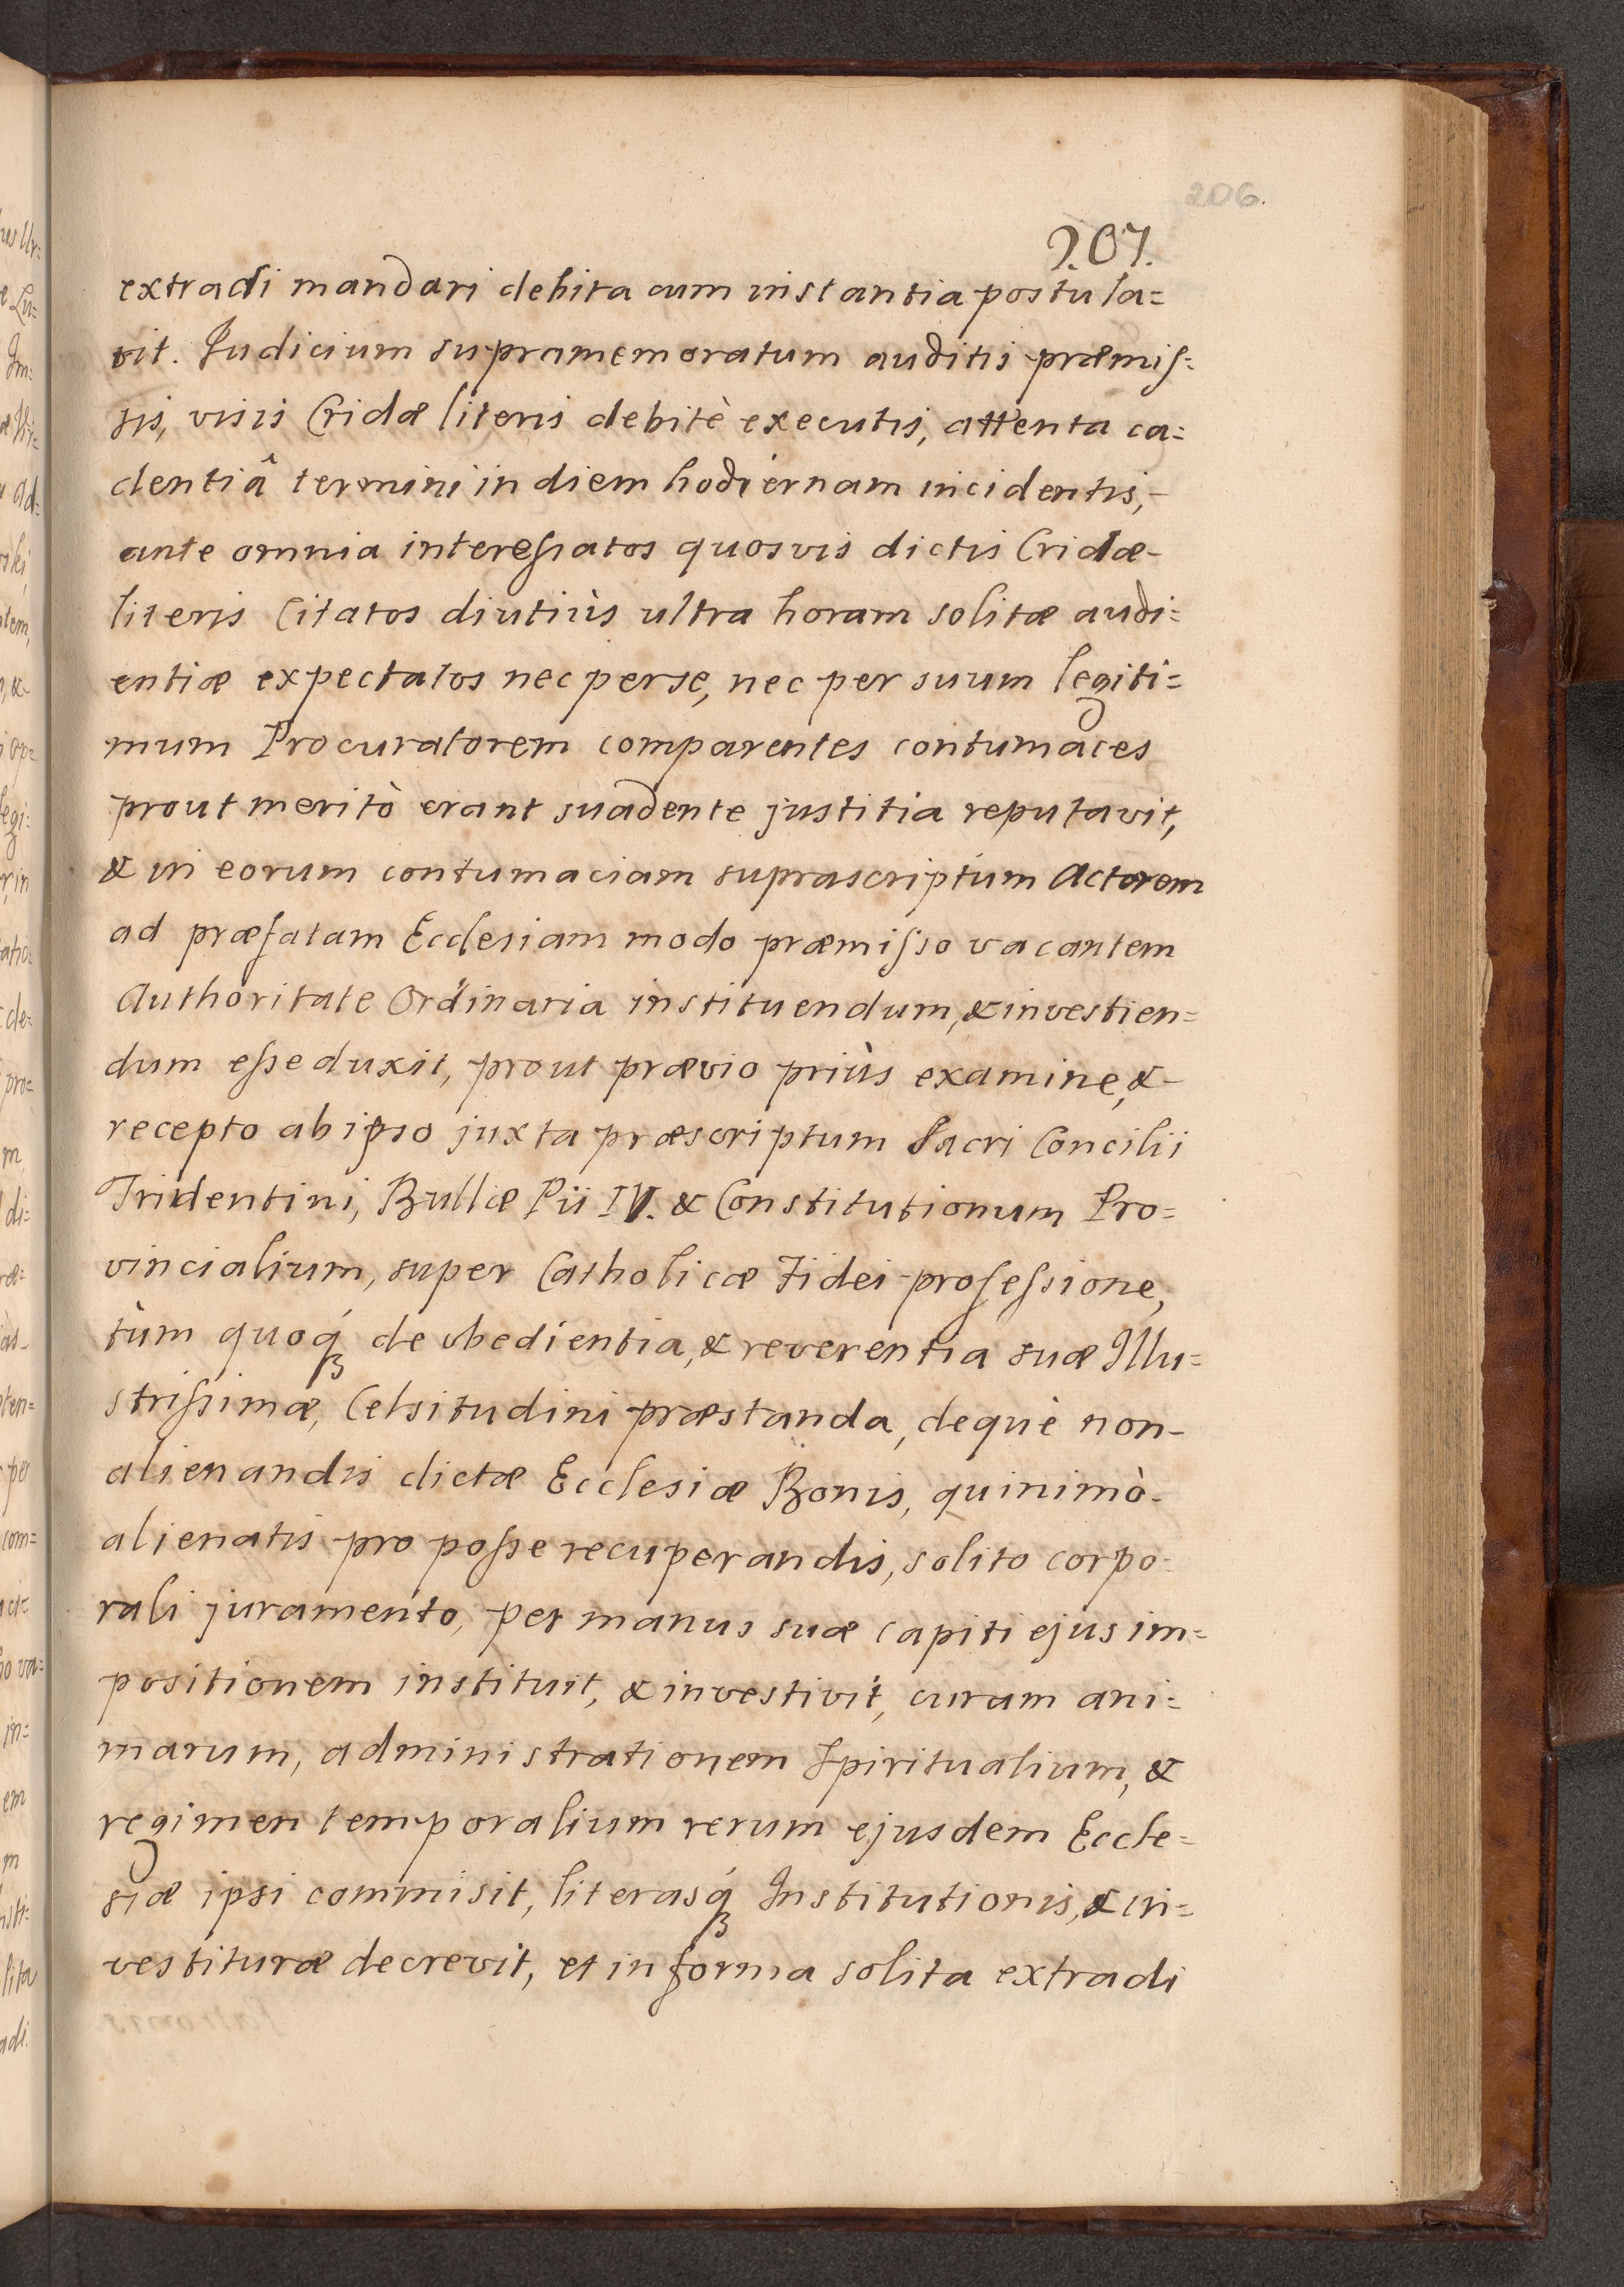 206.
207.
extradi mandari debita cum instantia postula=
vit. Judicium supramemoratum auditis præmis=
sis, visis Cridæ literis debitè executis, attenta ca=
dentiâ termini in diem hodiernam incidentis,-
ante omnia interessatos quosvis dictis Cridæ-
literis Citatos diutiùs ultra horam solitæ audi=
entiæ expectatos nec per se, nec per suum legiti=
mum Procuratorem comparentes contumaces
prout meritò erant suadente justitia reputavit,
& in eorum contumaciam suprascriptum Actorem
ad præfatam Ecclesiam modo præmisso vacantem
Authoritate Ordinaria instituendum, & investien=
dum esse duxit, prout prævio priùs examine, &-
recepto ab ipso juxta præscriptum Sacri Concilii
Tridentini, Bullæ Pii IV. & Constitutionum Pro=
vincialium, super Catholicæ Fidei professione,
tùm quoq́ʒ de obedientia, & reverentia suæ Illu=
strissimæ, Celsitudini præstanda, dequè non-
alienandis dictæ Ecclesiæ Bonis, quinimò-
alienatis pro posse recuperandis, solito corpo=
rali juramento, per manus suæ capiti ejus im=
positionem instituit, & investivit, curam ani=
marum, administrationem Spiritualium, &
regimen temporalium rerum ejusdem Eccle=
siæ ipsi commisit, literasq́ʒ Institutionis, & in=
vestituræ decrevit, et in forma solita extradi